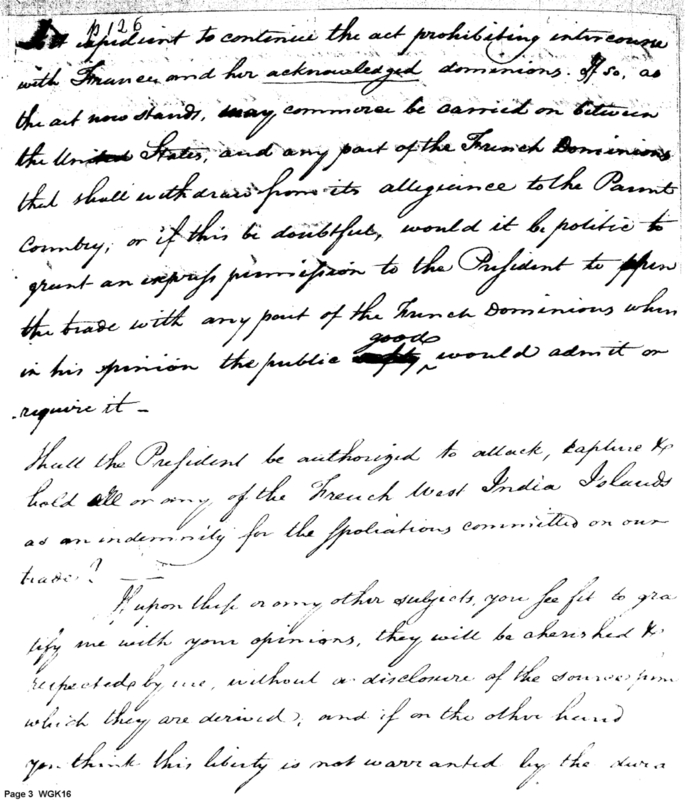 p 126
Is it expedient to continue the act prohibiting intercourse
with France and her acknowledged dominions. If so, as
the act now stands, may commerce be carried on between
the United States, and any part of the French Dominions
that shall withdraw from its allegiance to the Parent
Country; or if this be doubtful, would it be politic to
grant an express permission to the President to open
the trade with any part of the French Dominions when
good
in his opinion the public would admit or
require it –
Shall the President be authorized to attack, capture &
hold all or any of the French West India Islands
as an indemnity for the spoliations committed on our
trade? —
If upon these or any other subjects, you see fit to gra
tify me with your opinions, they will be cherished &
respected by me, without a disclosure of the source from
which they are derived; and if on the other hand
you think this liberty is not warranted by the dura
Page 3 WGK16